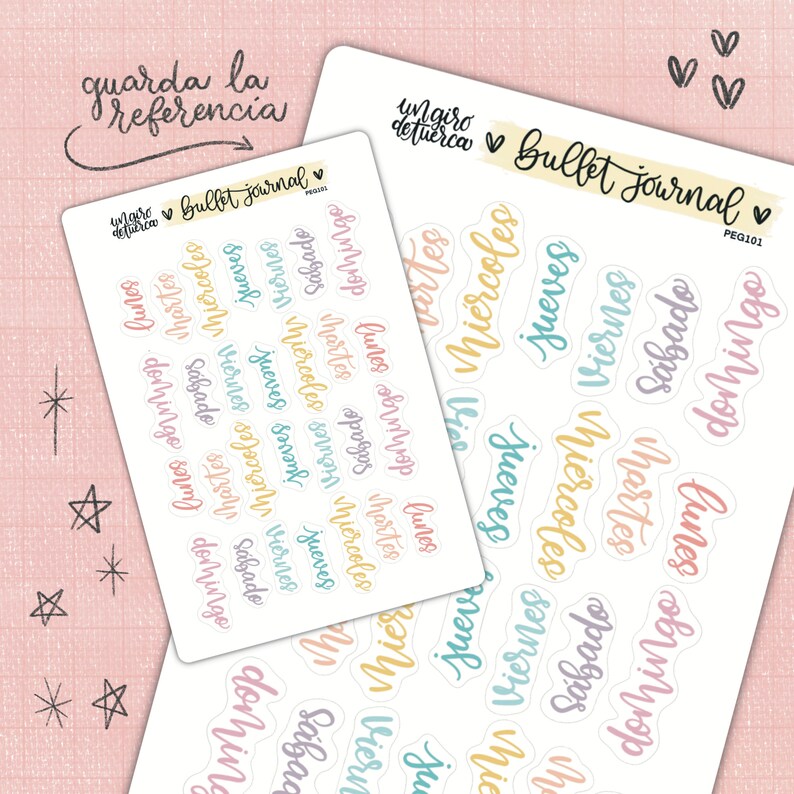 guarda la
referencia
un giro
de tuerca
bullet journal
PEG101
lunes
martes
miércoles
jueves
viernes
sábado
domingo
domingo
sábado
viernes
jueves
miércoles
martes
lunes
lunes
martes
miércoles
jueves
viernes
sábado
domingo
domingo
sábado
viernes
jueves
miércoles
martes
lunes
un giro
de tuerca
bullet journal
PEG101
martes
miércoles
jueves
viernes
sábado
domingo
vier
jueves
miércoles
martes
lunes
jueves
viernes
sábado
domingo
domingo
sábado
viernes
miércoles